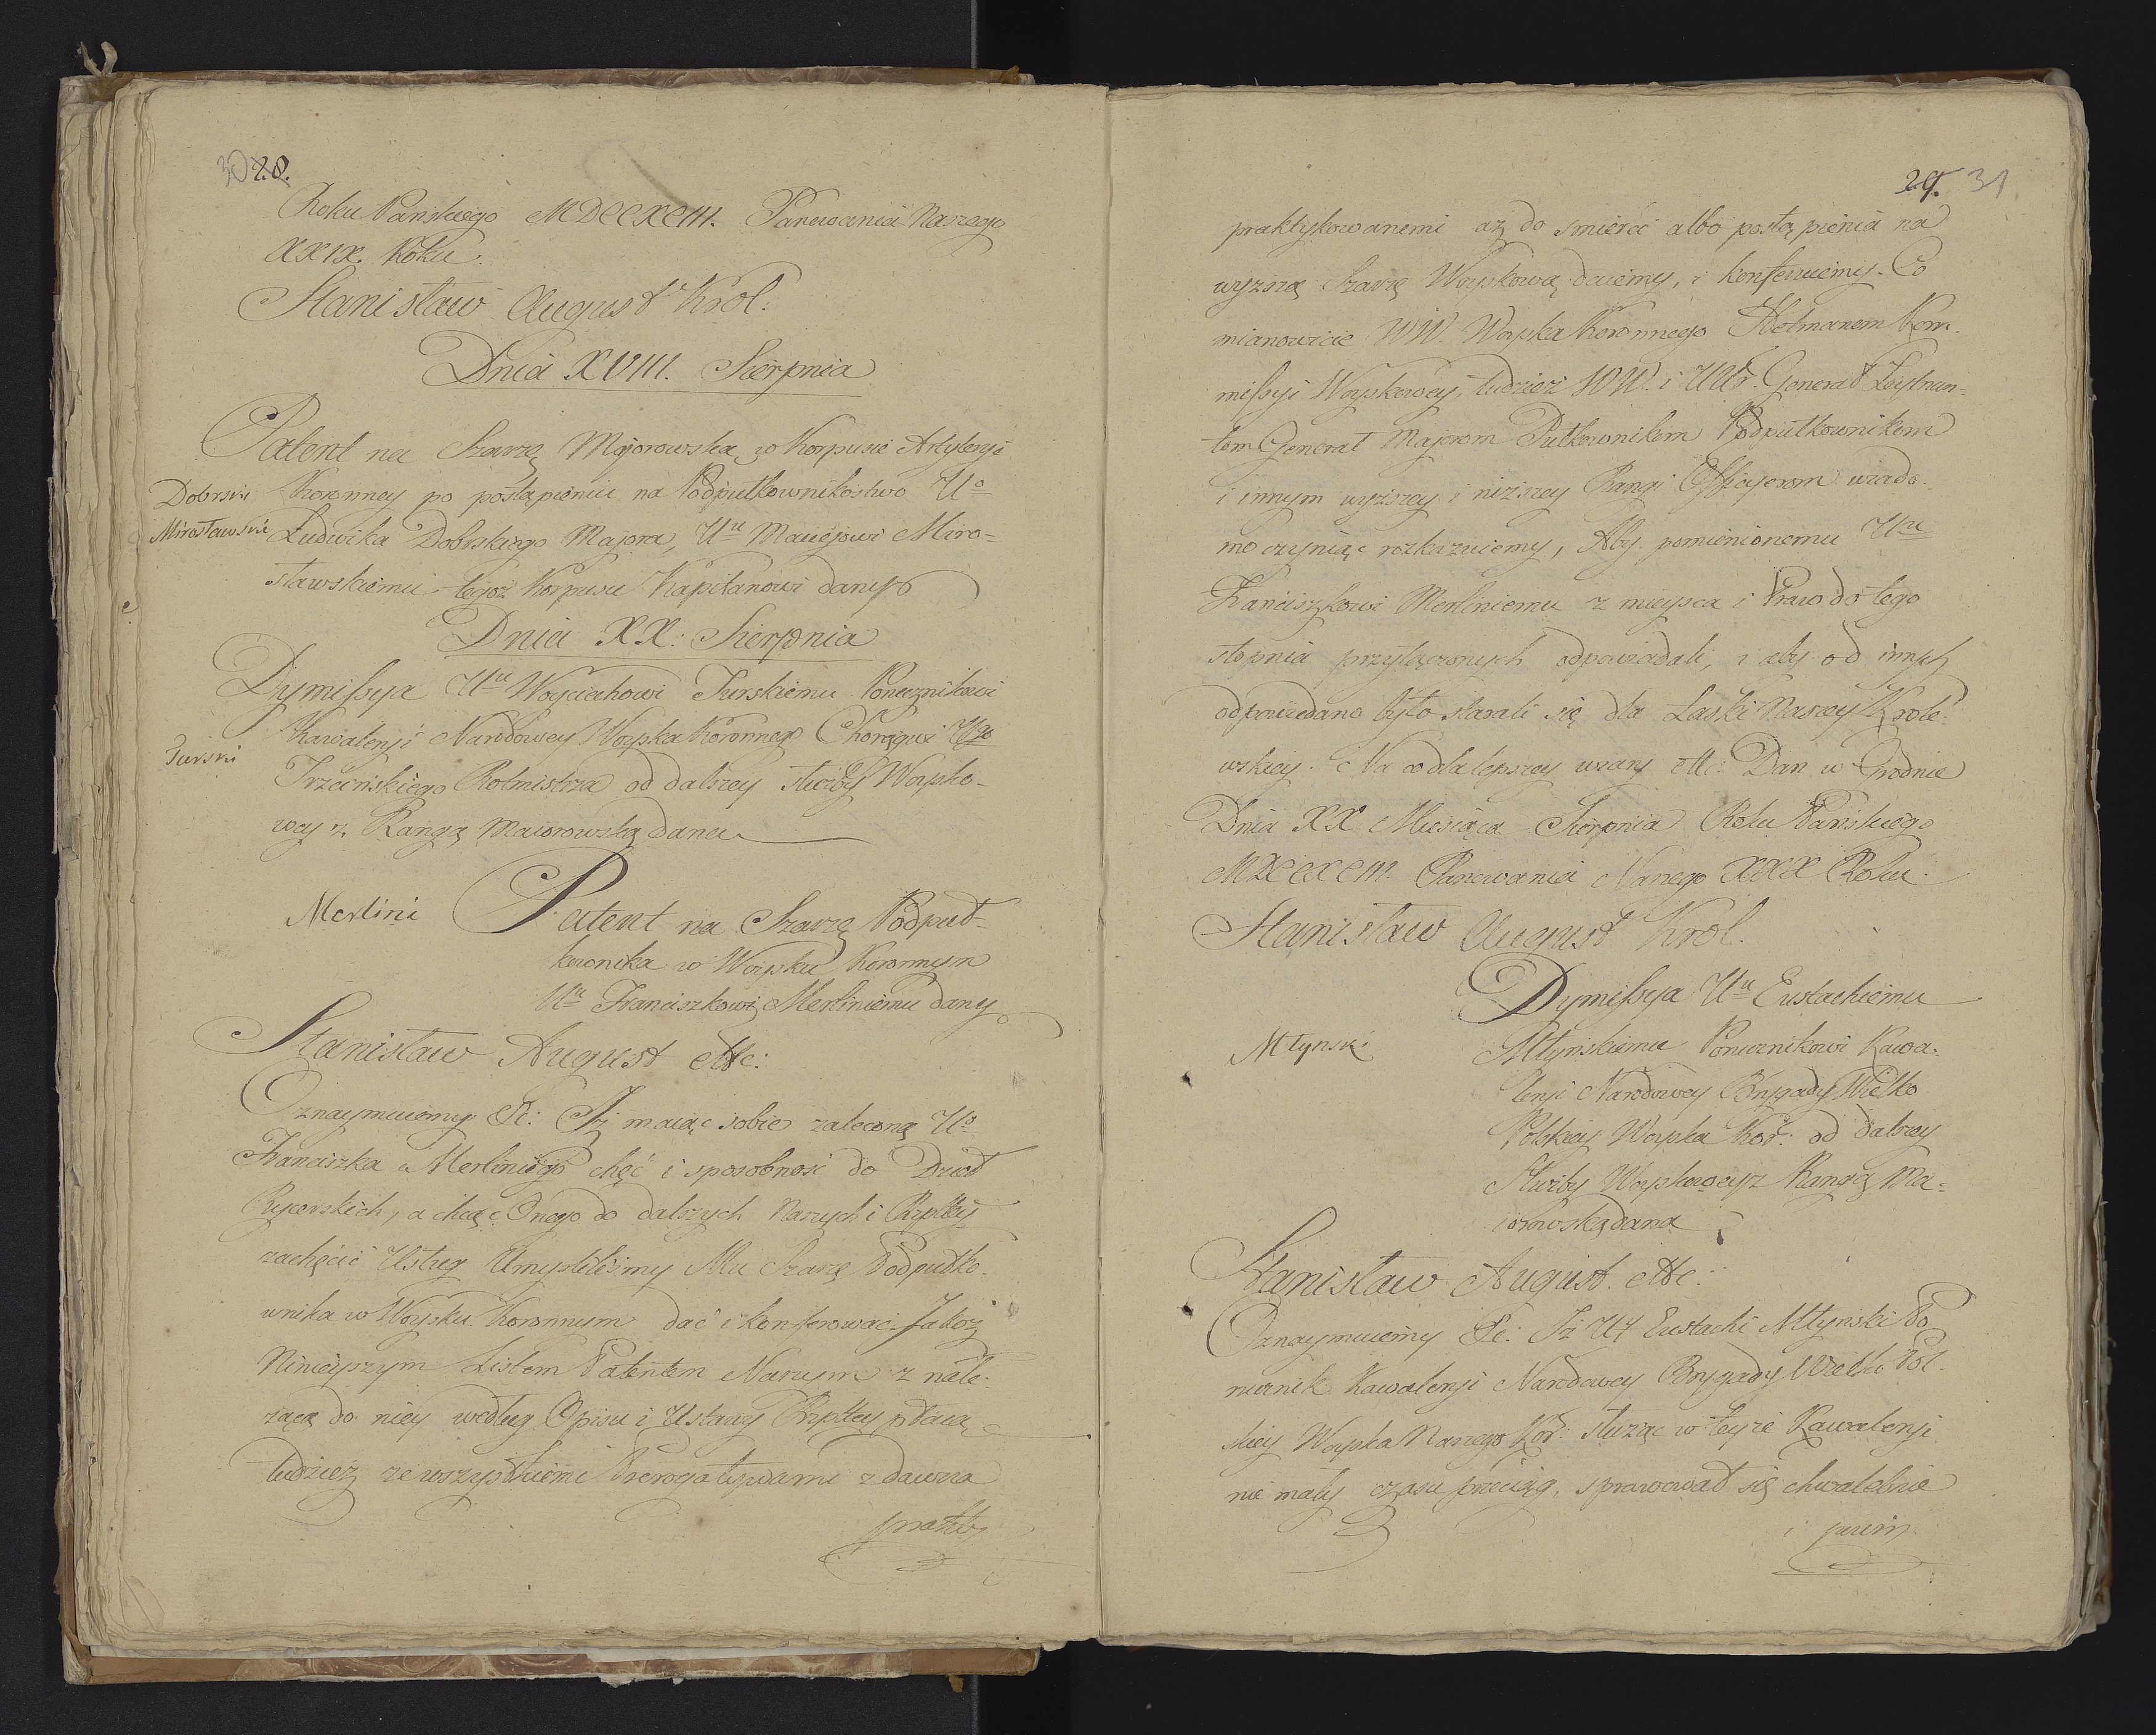 30 28.
Roku Pańskiego MDCCXCIII. Panowania Naszego
XXIX. Roku.
Stanisław August Krol.
Dnia XVIII. Sierpnia
Patent na Szarżę Majorowską w Korpusie Artyleryi
Dobrski Koronney po postąpieniu na Podpułkownikostwo Uo
Mirosławski Ludwika Dobrskiego Majora, Uu Maciejowi Miro=
sławskiemu tegoż Korpusu Kapitanowi dany
Dnia XX: Sierpnia
Dymissya Uu Woyciechowi Turskiemu Porucznikowi
Kawaleryi Narodowey Woyska Koronnego Chorągwi Ugo
Turski
Trzcińskiego Rotmistrza od dalszey służby Woysko-
wey z Rangą Maiorowską dana
Merlini Patent na Szarżę Podpuł-
kownika w Woysku Koronnym
Uu Franciszkowi Merliniemu dany
Stanisław August etc:
Oznaymuiemy Etc: Iż maiąc sobie zaleconą Uo
Franciszka Merliniego chęć i sposobność do Dzieł
Rycerskich, a chcąc Onego do dalszych Naszych i Rzpltey
zachęcić Usług Umyśliliśmy Mu Szarżę Podpułko-
wnika w Woysku Koronnym dać i konferować. Jakoż
Ninieyszym Listem Patentem Naszym z nale-
żącą do niey według Opisu i Ustawy Rzpltey płacą
tudzież ze wszystkiemi Prerogatywami z dawna
prakty
29. 31
praktykowanemi aż do smierći albo postąpienia na
wyższą Szarżę Woyskową daiemy, i konferuiemy. Co
mianowicie WW. Woyska Koronnego Hetmanom Kom-
missyi Woyskowey, tudzież WW. i UUr. Generał Leytnan-
tom Generał Majorom Pułkownikom Podpułkownikom
i innym wyższey i niższey Rangi Officyerom wiado-
mo czyniąc rozkazuiemy, Aby pomienionemu Uu
Franciszkowi Merliniemu z mieysca i Praw do tego
stopnia przyłączonych odpowiadali, i aby od innych
odpowiedano było starali się dla Łaski Naszey Krole-
wskiey. Na co dla lepszey wiary etc: Dan w Grodnie
Dnia XX Miesiąca Sierpnia Roku Pańskiego
MDCCXCIII. Panowania Naszego XXX Roku.
Stanisław August Krol.
Dymissya Uu Eustachiemu
Młynski Młynskiemu Porucznikowi Kawa-
leryi Narodowey Brygady Wielko
Polskiey Woyska Kor: od dalszey
Służby Woyskowey z Rangą Ma-
iorowską dana
Stanisław August. etc:
Oznaymuiemy Etc: Iż Ur Eustachi Młynski Po
rucznik Kawaleryi Narodowey Brygady Wielko Pol-
skiey Woyska Naszego Kor: służąc w teyże Kawaleryi
nie mały czasu przeciąg, sprawował się chwalebnie
i